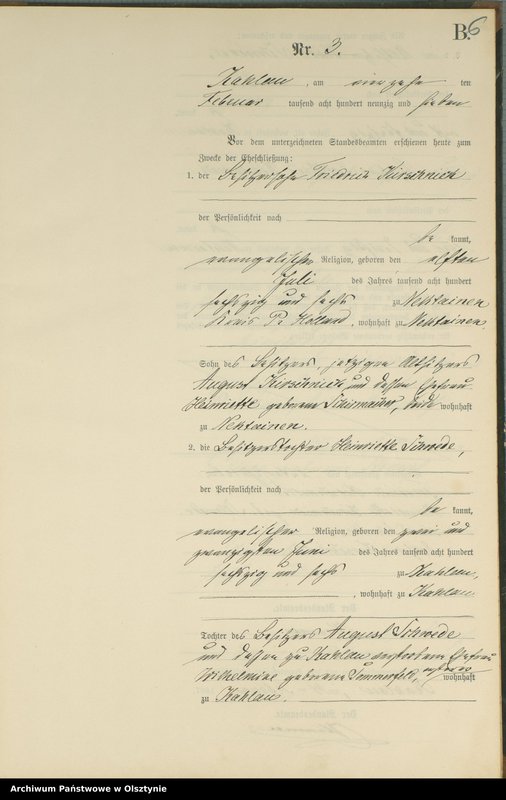 B. 6
Nr. 3.
Kahlau, am vierzehn ten
Februar tausend acht hundert neunzig und sieben
Vor dem unterzeichneten Standesbeamten erschienen heute zum
Zwecke der Eheschließung:
1. der Besitzersohn Friedrich Kirschnick
der Persönlichkeit nach
be kannt,
evangelischer Religion, geboren den elften
Juli des Jahres tausend acht hundert
sechszig und sechs zu Nektainen
Kreis Pr Holland, wohnhaft zu Nektainen
Sohn des Besitzers, jetzigen Altsitzers
August Kirschnick und dessen Ehefrau
Heinriette geborene, beide wohnhaft
zu Nektainen.
2. die Besitzerstochter Heinriette Schwede,
der Persönlichkeit nach
be kannt,
evangelischer Religion, geboren den zwei und
zwanzigsten Juni des Jahres tausend acht hundert
sechszig und sechs zu Kahlau,
, wohnhaft zu Kahlau
Tochter des Besitzers August Schwede
und dessen zu Kahlau verstorbene Ehefrau
Wilhelmine geborene Sommerfeld, ersterer wohnhaft
zu Kahlau.
Archiwum Państwowe w Olsztynie